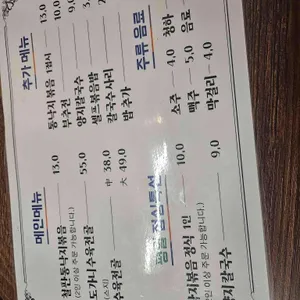 메인메뉴
철판통낙지볶음 13.0
(2인 이상 주문 가능합니다.)
도가니수육전골 55.0
(스지)
수육전골 中 38.0
大 49.0
추가 메뉴
통낙지볶음 1접시 13.0
부추전 10.0
양지칼국수 9.0
셀프볶음밥
칼국수사리
밥추가
평일 점심특선
낙지볶음 정식 1인 10.0
(2인 이상 주문 가능합니다.)
양지칼국수 9.0
주류 음료
소주 4.0 청하
맥주 5.0 음료
막걸리 4.0